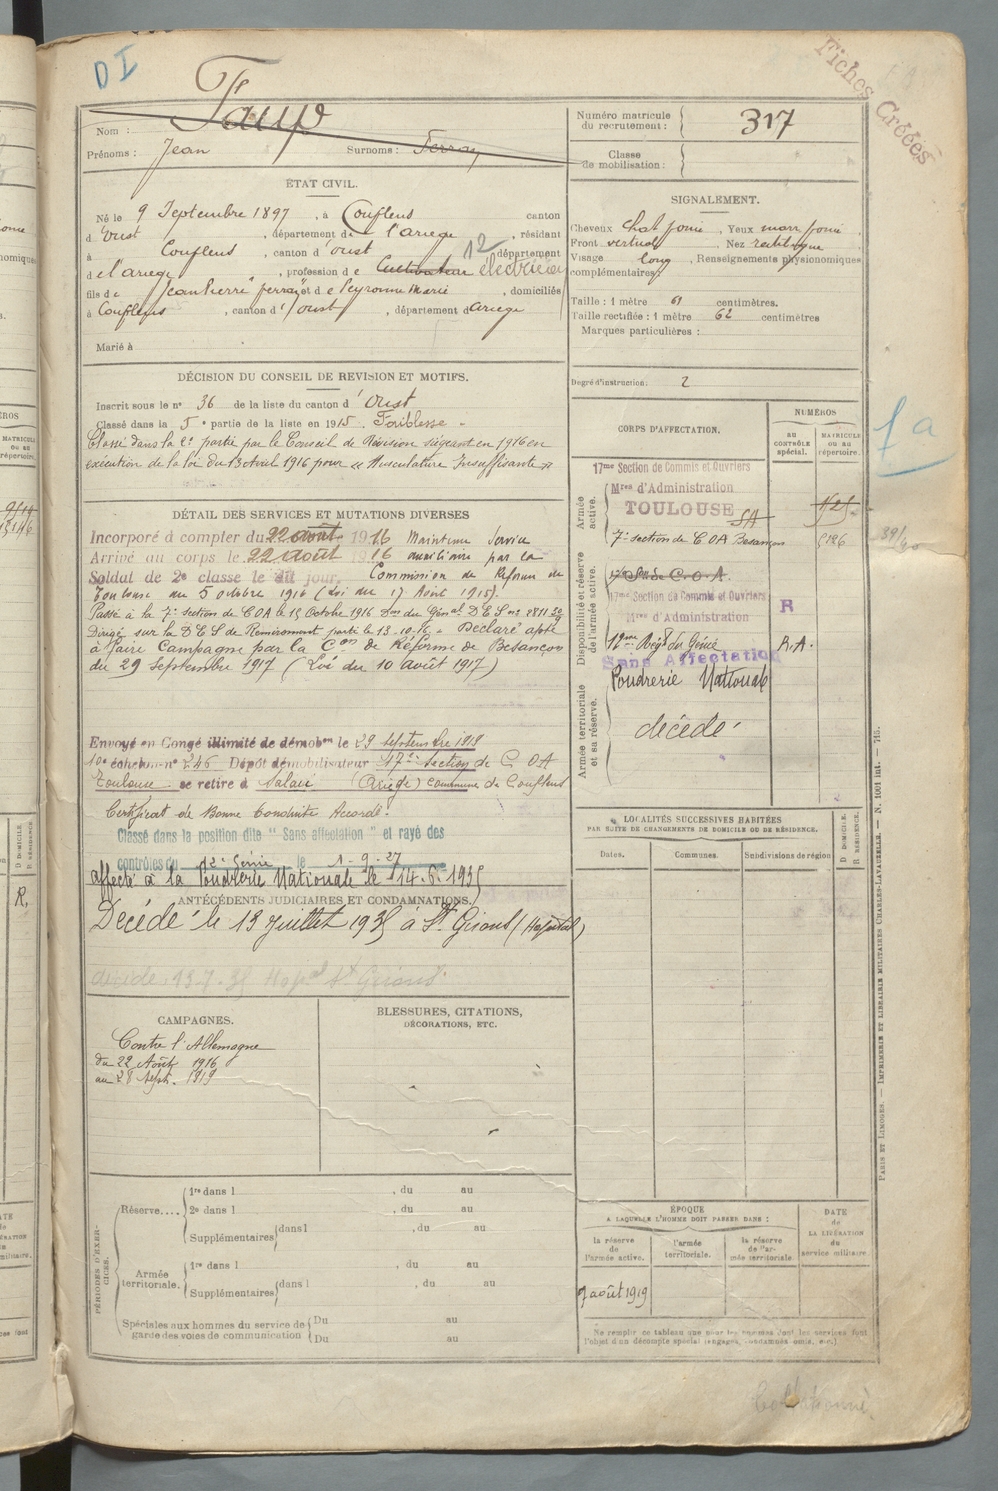 D I
Fiches Créées
Nom : Faup
Prénoms : Jean Surnoms : Ferray
Numéro matricule
du recrutement : 317
Classe
de mobilisation :
ÉTAT CIVIL.
Né le 9 Septembre 1897, à Couflens canton
d'Oust, département de l'ariege, résidant
à Couflens, canton d'oust 12 département
de l'ariege, profession de Cultivateur électricien
fils de Jean Pierre ferray et de Peyronne Marie, domiciliés
à Couflens, canton d'oust, département d ariege
Marié à
SIGNALEMENT.
Cheveux chat fonce, Yeux marr fonce,
Front vertical, Nez rectiligne
Visage long, Renseignements physionomiques
complémentaires
Taille : 1 mètre 61 centimètres.
Taille rectifiée : 1 mètre 62 centimètres
Marques particulières :
Degré d'instruction : 2
DÉCISION DU CONSEIL DE REVISION ET MOTIFS.
Inscrit sous le n° 36 de la liste du canton d'Oust
Classé dans la 5e partie de la liste en 1915. Faiblesse -
Classé dans la 2e partie par le Conseil de Révision siégeant en 1916 en
exécution de la loi du 13 Avril 1916 pour « Musculature Insuffisante »
DÉTAIL DES SERVICES ET MUTATIONS DIVERSES
Incorporé à compter du 22 août 1916 Maintenu Service
Arrivé au corps le 22 août 1916 auxiliaire par la
Soldat de 2e classe le dit jour. Commission de Réforme de
Toulouse du 5 octobre 1916 (Loi du 17 Août 1915).
Passé à la 7e section de C O A le 15 Octobre 1916
Dirigé sur la D E S de Remiremont parti le 13.10.16 - Déclaré apte
à faire Campagne par la Con de Réforme de Besançon
du 29 septembre 1917 (Loi du 10 août 1917)
Envoyé en Congé illimité de démobon le 29 septembre 1919
10e échelon n° 246 Dépôt démobilisateur 17e section de C O A
Toulouse se retire à Salau (Ariége) commune de Couflens
Certificat de Bonne Conduite Accordé.
Classé dans la position dite "Sans affectation" et rayé des
contrôles du 12e Génie le 1-9-27
affecté à la Poudrerie Nationale le 14.6.1935
ANTÉCÉDENTS JUDICIAIRES ET CONDAMNATIONS.
Décédé le 13 juillet 1935 à St Girons (Hôpital)
décédé 13-7-35 Hopal St Girons
CORPS D'AFFECTATION.
NUMÉROS
AU
CONTRÔLE
spécial.
MATRICULE
OU AU
répertoire.
Armée
active.
17me Section de Commis et Ouvriers
Mres d'Administration
TOULOUSE SA
7e section de C O A Besançon
Disponibilité et réserve
de l'armée active.
17e Son de C.O.A.
17me Section de Commis et Ouvriers R
Mres d'Administration
12me Régt du Génie R.A.
Sans Affectation
Armée territoriale
et sa réserve.
Poudrerie Nationale
décédé
1a
LOCALITÉS SUCCESSIVES HABITÉES
PAR SUITE DE CHANGEMENTS DE DOMICILE OU DE RÉSIDENCE.
D DOMICILE.
R RÉSIDENCE.
Dates. Communes. Subdivisions de région
CAMPAGNES.
Contre l'Allemagne
du 22 Août 1916
au 28 Sept. 1919
BLESSURES, CITATIONS,
DÉCORATIONS, ETC.
PÉRIODES D'EXERCICES.
Réserve....
1re dans l , du au
2e dans l , du au
Supplémentaires dans l , du au
Armée
territoriale.
1re dans l , du au
Supplémentaires dans l , du au
Spéciales aux hommes du service de
garde des voies de communication
Du au
Du au
ÉPOQUE
A LAQUELLE L'HOMME DOIT PASSER DANS :
la réserve
de
l'armée active.
l'armée
territoriale.
la réserve
de l'armée territoriale.
DATE
de
LA LIBÉRATION
du
service militaire.
9 août 1919
Ne remplir ce tableau que pour les hommes dont les services font
l'objet d'un décompte spécial (engagés, condamnés omis, etc.)
PARIS ET LIMOGES. — IMPRIMERIE ET LIBRAIRIE MILITAIRES CHARLES-LAVAUZELLE. — N. 1001 int. — 715.